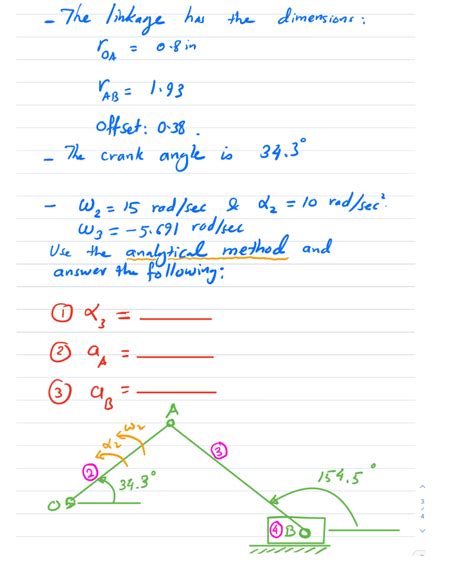 - The linkage has the dimensions:
r_OA = 0.8 in
r_AB = 1.93
Offset: 0.38.
- The crank angle is 34.3°
- ω₂ = 15 rad/sec & α₂ = 10 rad/sec².
ω₃ = -5.691 rad/sec
Use the analytical method and
answer the following:
① α₃ =
② a_A =
③ a_B =
A
ω₂
α₂
②
③
34.3°
154.5°
O
④ B
3
/
4